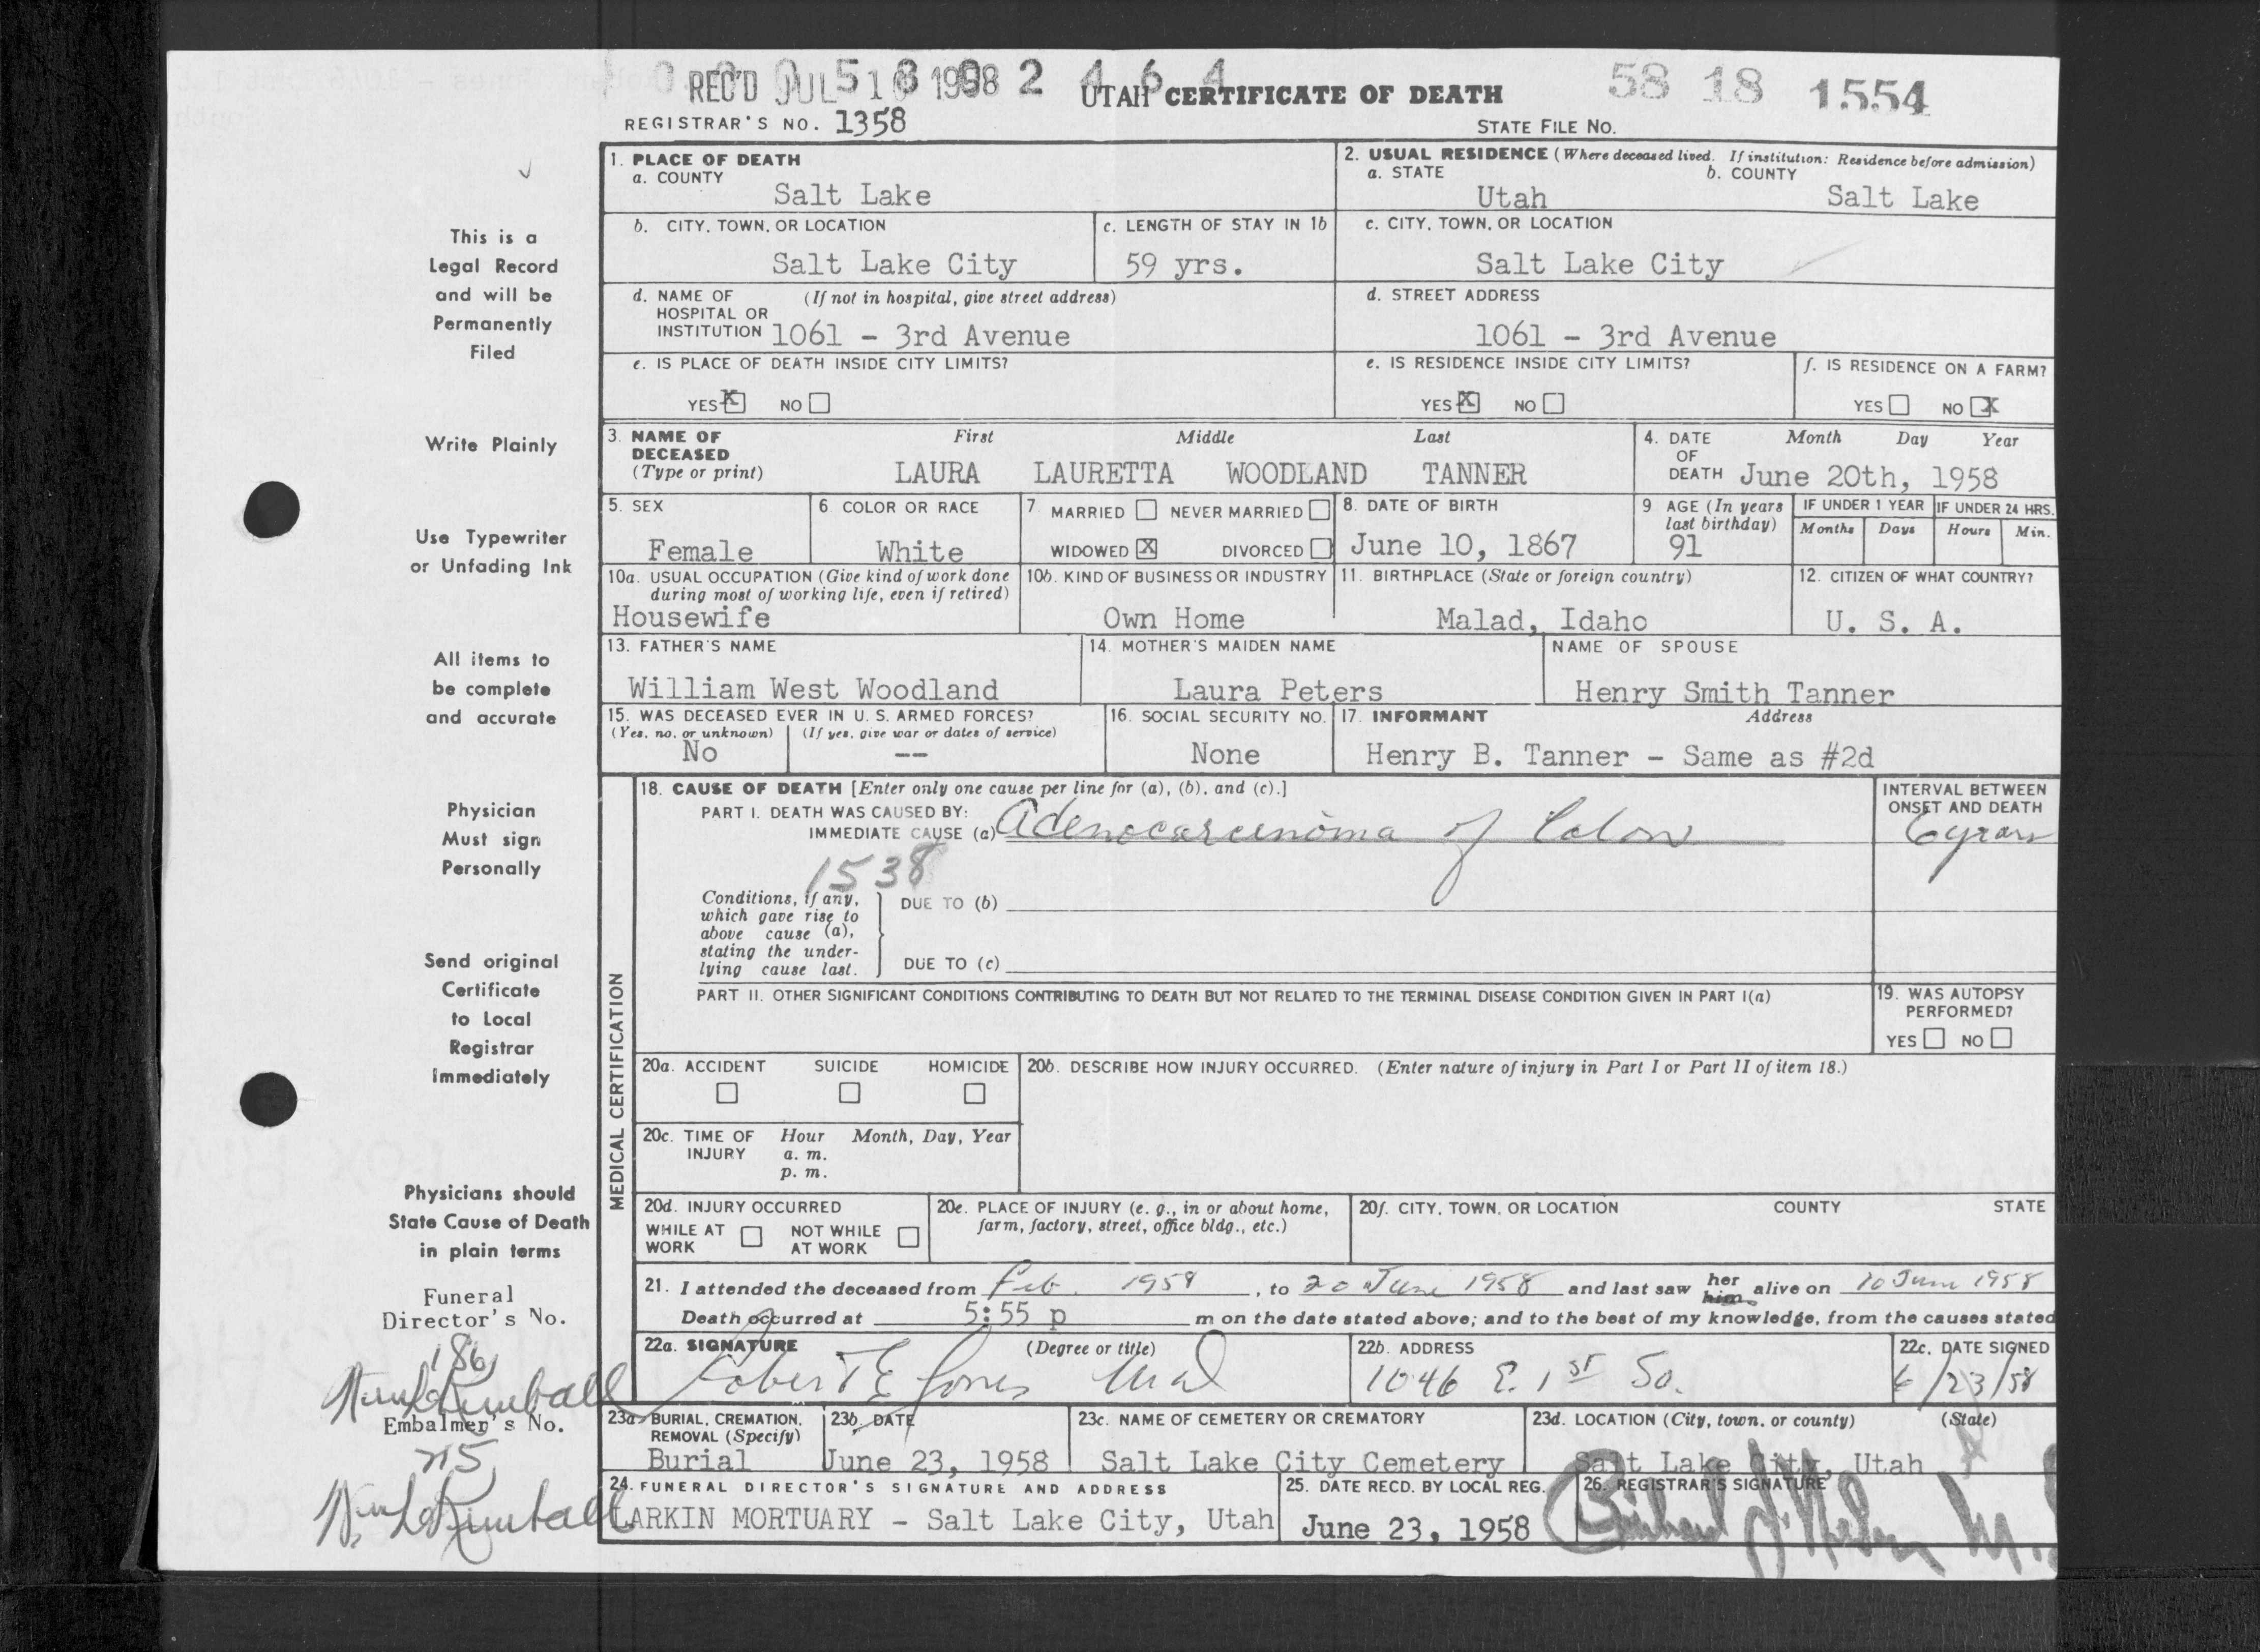 REC'D JUL 1958 UTAH CERTIFICATE OF DEATH 58 18 1554
REGISTRAR'S NO. 1358
STATE FILE NO.
This is a
Legal Record
and will be
Permanently
Filed
Write Plainly
Use Typewriter
or Unfading Ink
All items to
be complete
and accurate
Physician
Must sign
Personally
Send original
Certificate
to Local
Registrar
Immediately
Physicians should
State Cause of Death
in plain terms
Funeral
Director's No.
186
Embalmer's No.
215
1. PLACE OF DEATH
a. COUNTY
Salt Lake
2. USUAL RESIDENCE (Where deceased lived. If institution: Residence before admission)
a. STATE b. COUNTY
Utah Salt Lake
b. CITY, TOWN, OR LOCATION
Salt Lake City
c. LENGTH OF STAY IN 1b
59 yrs.
c. CITY, TOWN, OR LOCATION
Salt Lake City
d. NAME OF (If not in hospital, give street address)
HOSPITAL OR
INSTITUTION 1061 - 3rd Avenue
d. STREET ADDRESS
1061 - 3rd Avenue
e. IS PLACE OF DEATH INSIDE CITY LIMITS?
YES X NO
e. IS RESIDENCE INSIDE CITY LIMITS?
YES X NO
f. IS RESIDENCE ON A FARM?
YES NO X
3. NAME OF First Middle Last
DECEASED
(Type or print) LAURA LAURETTA WOODLAND TANNER
4. DATE Month Day Year
OF
DEATH June 20th, 1958
5. SEX
Female
6. COLOR OR RACE
White
7. MARRIED NEVER MARRIED
WIDOWED X DIVORCED
8. DATE OF BIRTH
June 10, 1867
9. AGE (In years
last birthday)
91
IF UNDER 1 YEAR IF UNDER 24 HRS.
Months Days Hours Min.
10a. USUAL OCCUPATION (Give kind of work done
during most of working life, even if retired)
Housewife
10b. KIND OF BUSINESS OR INDUSTRY
Own Home
11. BIRTHPLACE (State or foreign country)
Malad, Idaho
12. CITIZEN OF WHAT COUNTRY?
U. S. A.
13. FATHER'S NAME
William West Woodland
14. MOTHER'S MAIDEN NAME
Laura Peters
NAME OF SPOUSE
Henry Smith Tanner
15. WAS DECEASED EVER IN U. S. ARMED FORCES?
(Yes, no, or unknown) (If yes, give war or dates of service)
No --
16. SOCIAL SECURITY NO.
None
17. INFORMANT Address
Henry B. Tanner - Same as #2d
MEDICAL CERTIFICATION
18. CAUSE OF DEATH [Enter only one cause per line for (a), (b), and (c).]
PART I. DEATH WAS CAUSED BY:
IMMEDIATE CAUSE (a) Adenocarcinoma of Colon
INTERVAL BETWEEN
ONSET AND DEATH
6 years
1538
Conditions, if any,
which gave rise to
above cause (a),
stating the under-
lying cause last.
DUE TO (b)
DUE TO (c)
PART II. OTHER SIGNIFICANT CONDITIONS CONTRIBUTING TO DEATH BUT NOT RELATED TO THE TERMINAL DISEASE CONDITION GIVEN IN PART I(a)
19. WAS AUTOPSY
PERFORMED?
YES NO
20a. ACCIDENT SUICIDE HOMICIDE
20b. DESCRIBE HOW INJURY OCCURRED. (Enter nature of injury in Part I or Part II of item 18.)
20c. TIME OF Hour Month, Day, Year
INJURY a. m.
p. m.
20d. INJURY OCCURRED
WHILE AT NOT WHILE
WORK AT WORK
20e. PLACE OF INJURY (e. g., in or about home,
farm, factory, street, office bldg., etc.)
20f. CITY, TOWN, OR LOCATION COUNTY STATE
21. I attended the deceased from Feb. 1958, to 20 June 1958 and last saw her him alive on 10 June 1958
Death occurred at 5:55 p m on the date stated above; and to the best of my knowledge, from the causes stated
22a. SIGNATURE (Degree or title)
Robert E Jones MD
22b. ADDRESS
1046 E. 1st So.
22c. DATE SIGNED
6/23/58
23a. BURIAL, CREMATION,
REMOVAL (Specify)
Burial
23b. DATE
June 23, 1958
23c. NAME OF CEMETERY OR CREMATORY
Salt Lake City Cemetery
23d. LOCATION (City, town, or county) (State)
Salt Lake City, Utah
24. FUNERAL DIRECTOR'S SIGNATURE AND ADDRESS
LARKIN MORTUARY - Salt Lake City, Utah
25. DATE RECD. BY LOCAL REG.
June 23, 1958
26. REGISTRAR'S SIGNATURE